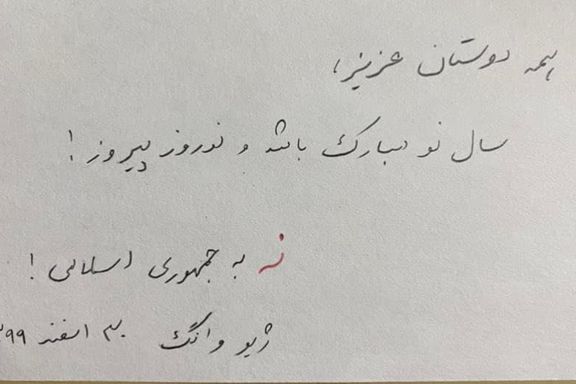 همه دوستان عزیز،
سال نو مبارک باشد و نوروز پیروز!
نه به جمهوری اسلامی!
ژیو وانگ ۳۰ اسفند ۹۹